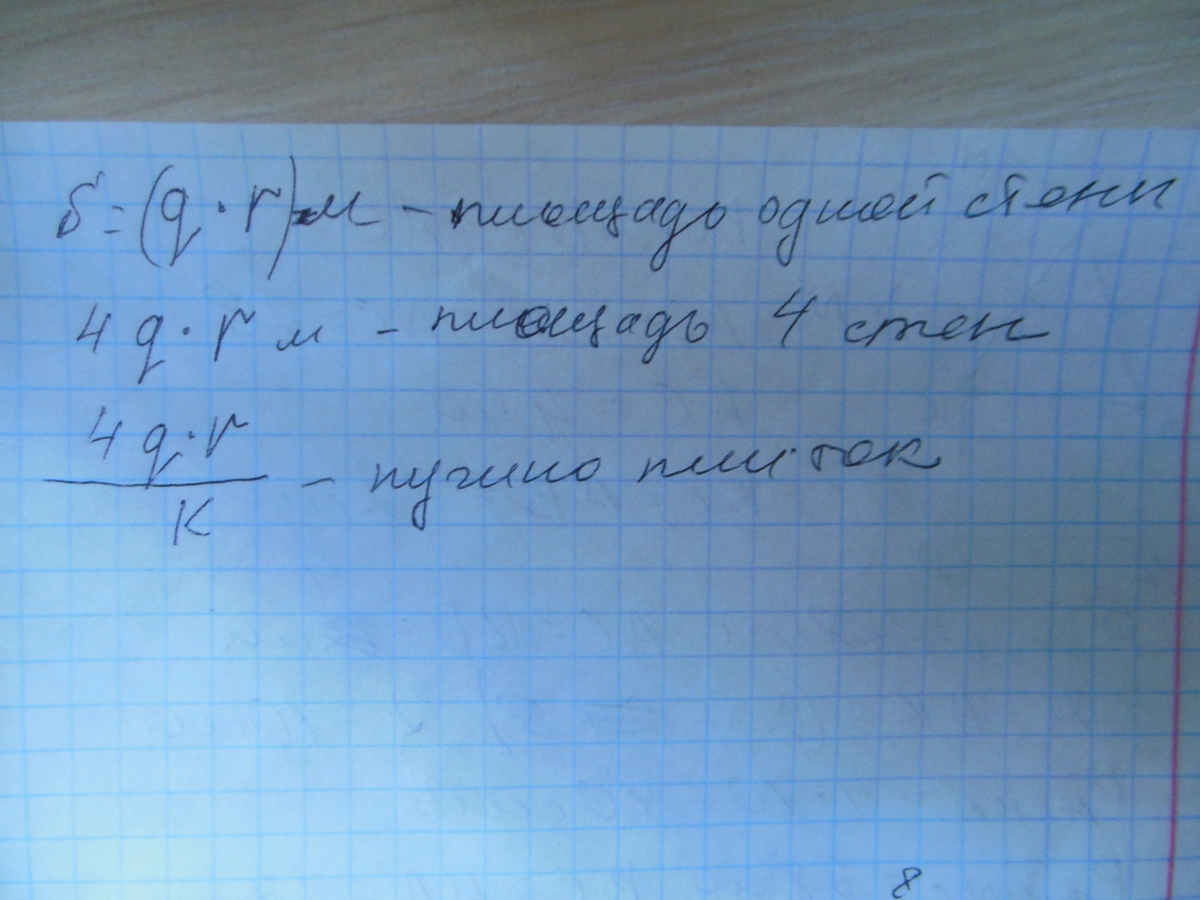 S = (q · r) м - площадь одной стены
4 q · r м - площадь 4 стен
4 q · r
K
- нужно плиток
8